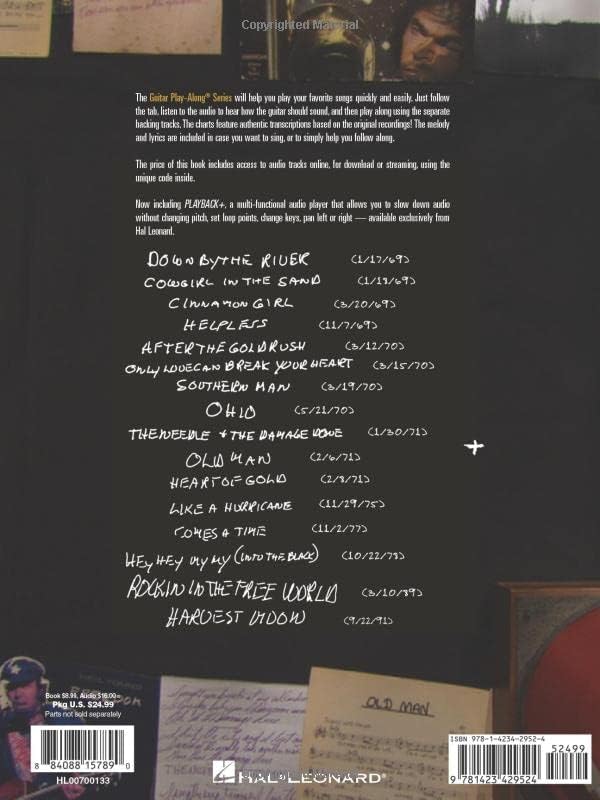 Copyrighted Material
The Guitar Play-Along® Series will help you play your favorite songs quickly and easily. Just follow
the tab, listen to the audio to hear how the guitar should sound, and then play along using the separate
backing tracks. The charts feature authentic transcriptions based on the original recordings! The melody
and lyrics are included in case you want to sing, or to simply help you follow along.
The price of this book includes access to audio tracks online, for download or streaming, using the
unique code inside.
Now including PLAYBACK+, a multi-functional audio player that allows you to slow down audio
without changing pitch, set loop points, change keys, pan left or right — available exclusively from
Hal Leonard.
DOWN BY THE RIVER (1/17/69)
COWGIRL IN THE SAND (1/18/69)
CINNAMON GIRL (3/20/69)
HELPLESS (11/7/69)
AFTER THE GOLDRUSH (3/12/70)
ONLY LOVE CAN BREAK YOUR HEART (3/15/70)
SOUTHERN MAN (3/19/70)
OHIO (5/21/70)
THE NEEDLE + THE DAMAGE DONE (1/30/71)
OLD MAN (2/6/71)
HEART OF GOLD (2/8/71)
LIKE A HURRICANE (11/29/75)
COMES A TIME (11/2/77)
HEY HEY MY MY (INTO THE BLACK) (10/22/78)
ROCKIN IN THE FREE WORLD (3/10/89)
HARVEST MOON (9/22/91)
Book $8.99, Audio $16.00 =
Pkg U.S. $24.99
Parts not sold separately
8 84088 15789 0
HL00700133
OLD MAN
HAL•LEONARD®
ISBN 978-1-4234-2952-4
52499
9 781423 429524